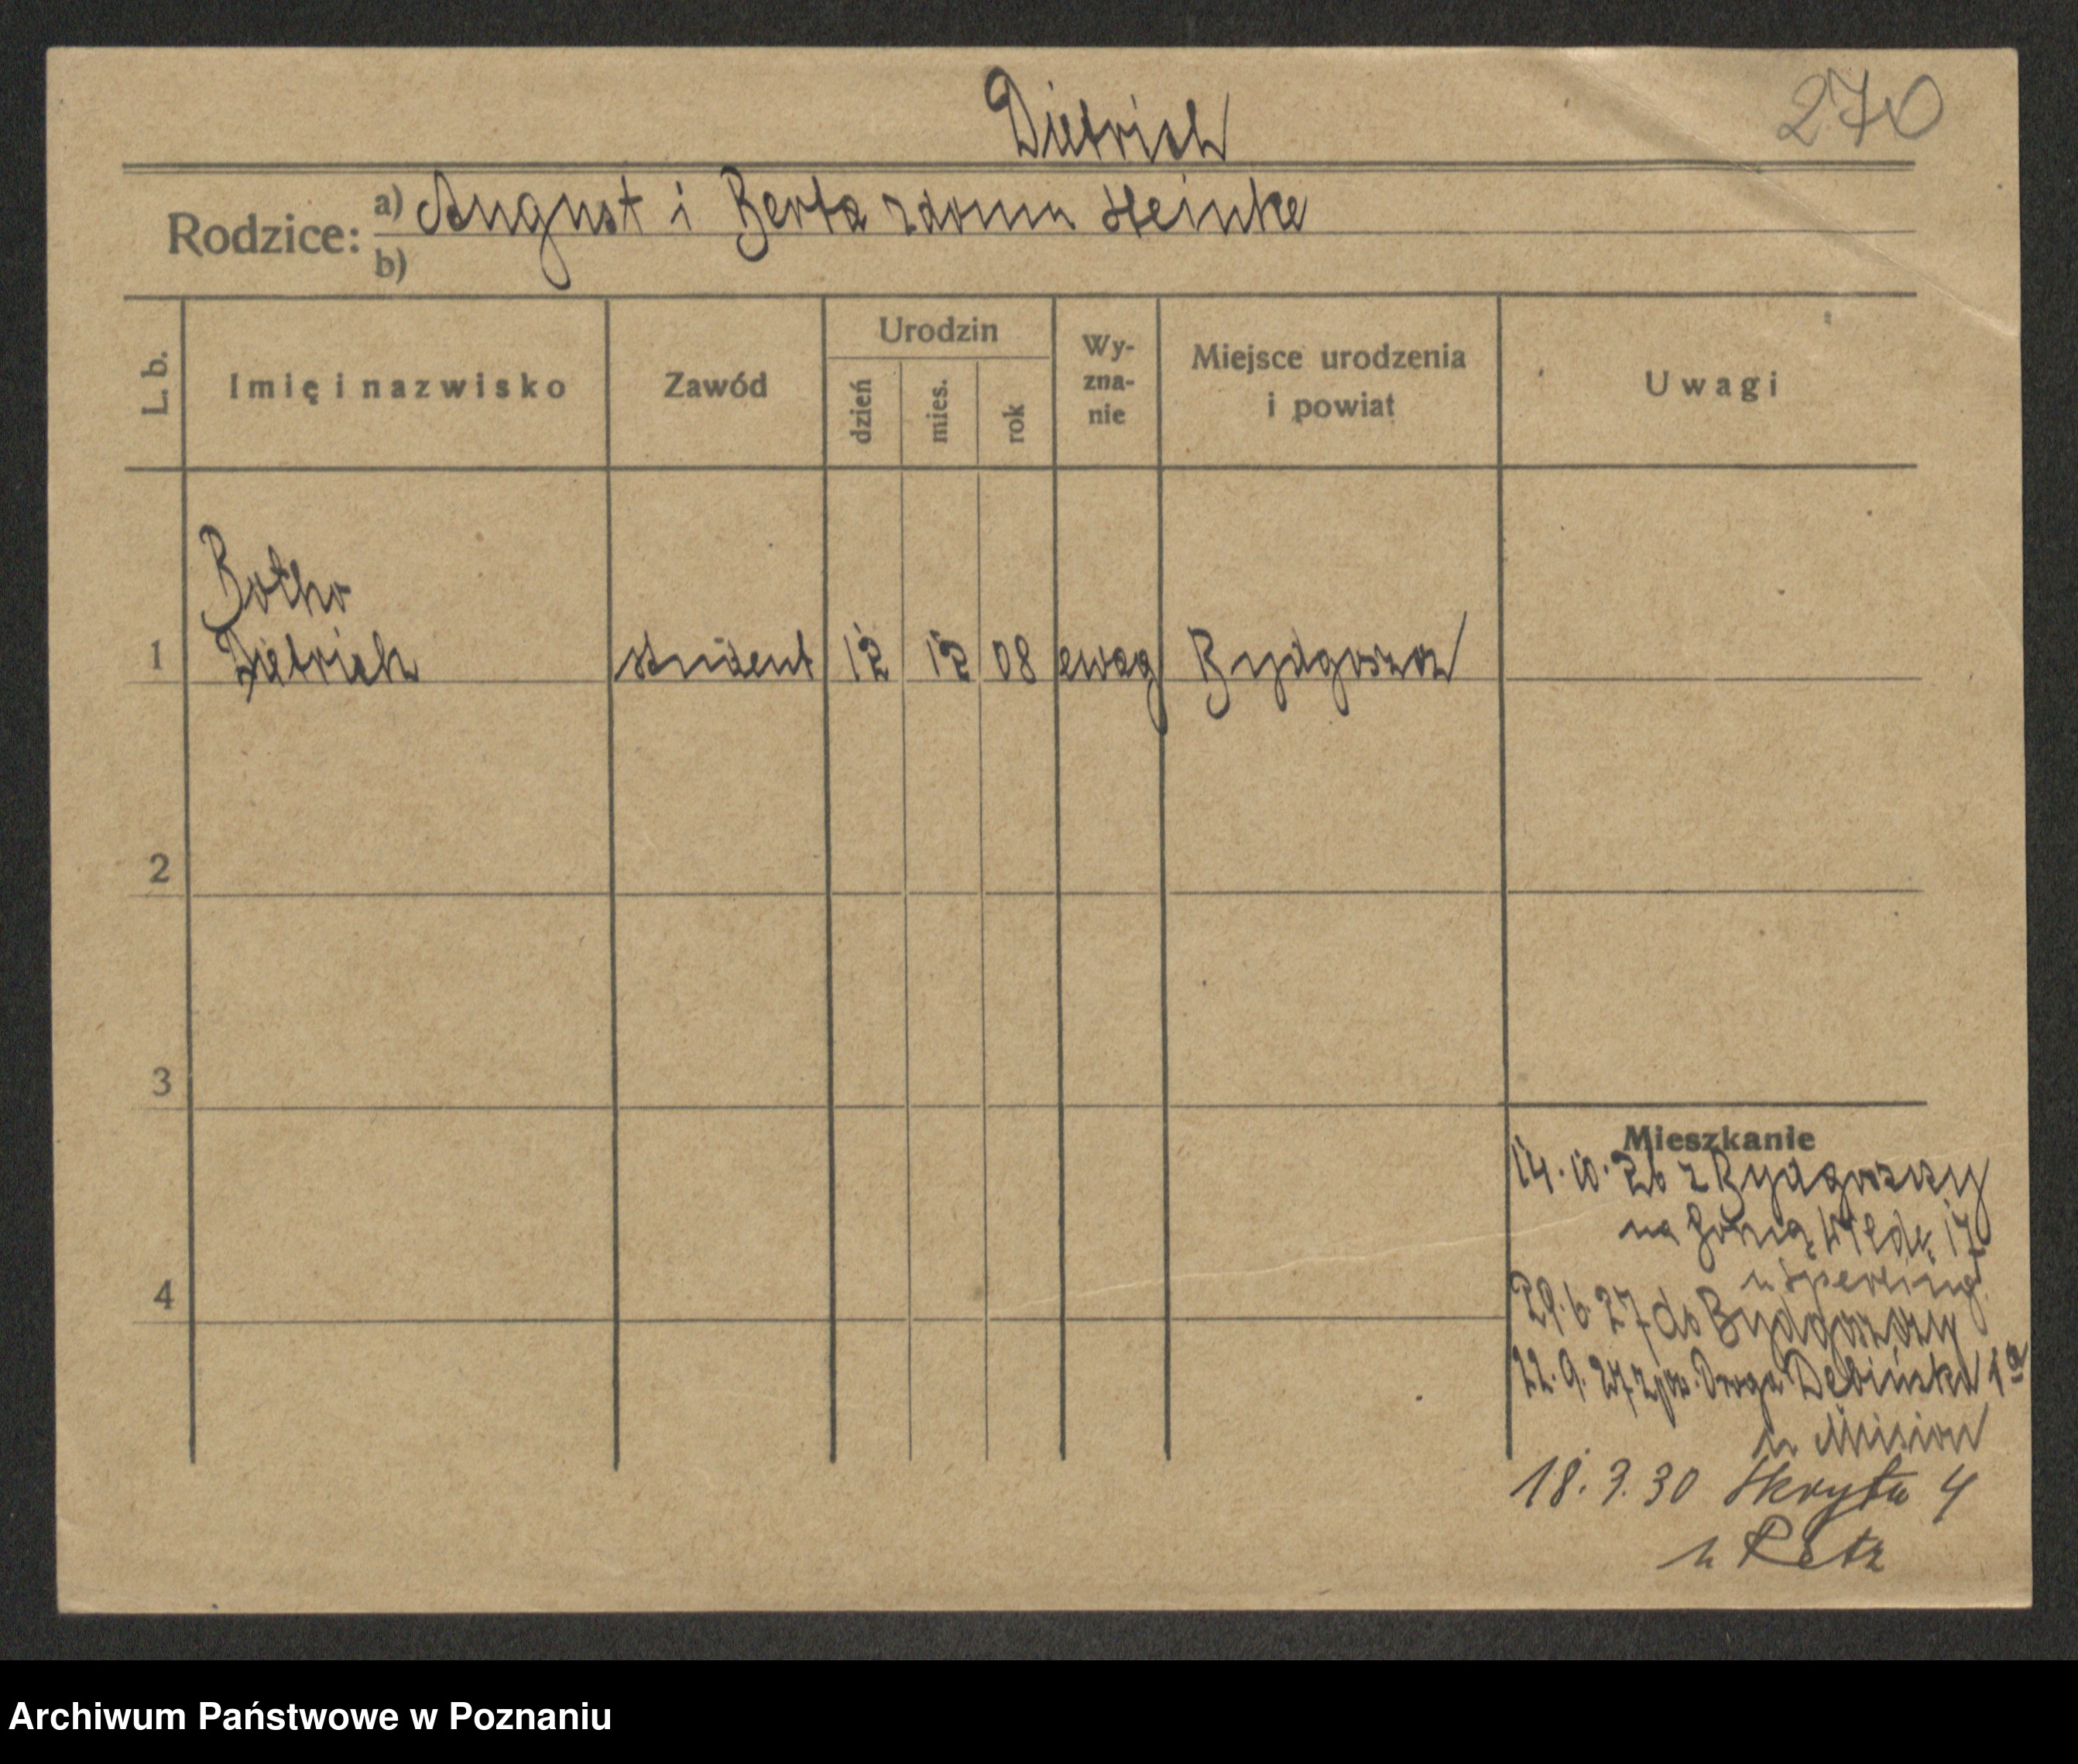 Dietrich
270
Rodzice: a) August i Berta zdomu Heinke
b)
L. b.
Imię i nazwisko
Zawód
Urodzin
dzień
mies.
rok
Wy-
zna-
nie
Miejsce urodzenia
i powiat
Uwagi
Botho
1 Dietrich student 12 12 08 ewag Bydgoszcz
2
3
4
Mieszkanie
14.10.26 z Bydgoszczy
na Górną Wildę 17
u Sperling
29.6.27 do Bydgoszczy
22.9.27 zpw. Droga Dębińska 1a
u
18.3.30 Skryta 4
u Retz
Archiwum Państwowe w Poznaniu